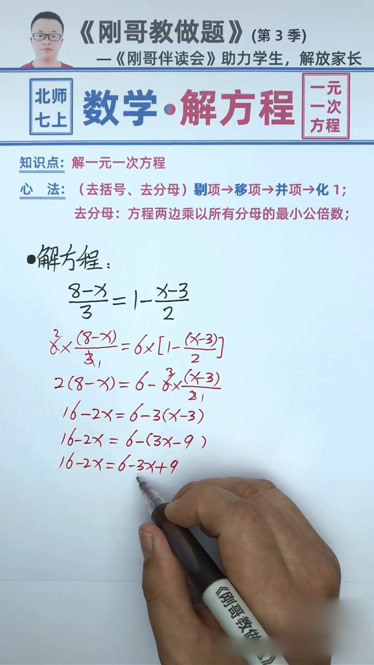 《刚哥教做题》(第3季)
—《刚哥伴读会》助力学生，解放家长
北师七上
数学·解方程
一元一次方程
知识点：解一元一次方程
心 法：（去括号、去分母）剔项→移项→并项→化1；
去分母：方程两边乘以所有分母的最小公倍数；
•解方程：
(8-x)/3=1-(x-3)/2
6×(8-x)/3=6×[1-(x-3)/2]
2(8-x)=6-6×(x-3)/2
16-2x=6-3(x-3)
16-2x=6-(3x-9)
16-2x=6-3x+9
《刚哥教做题